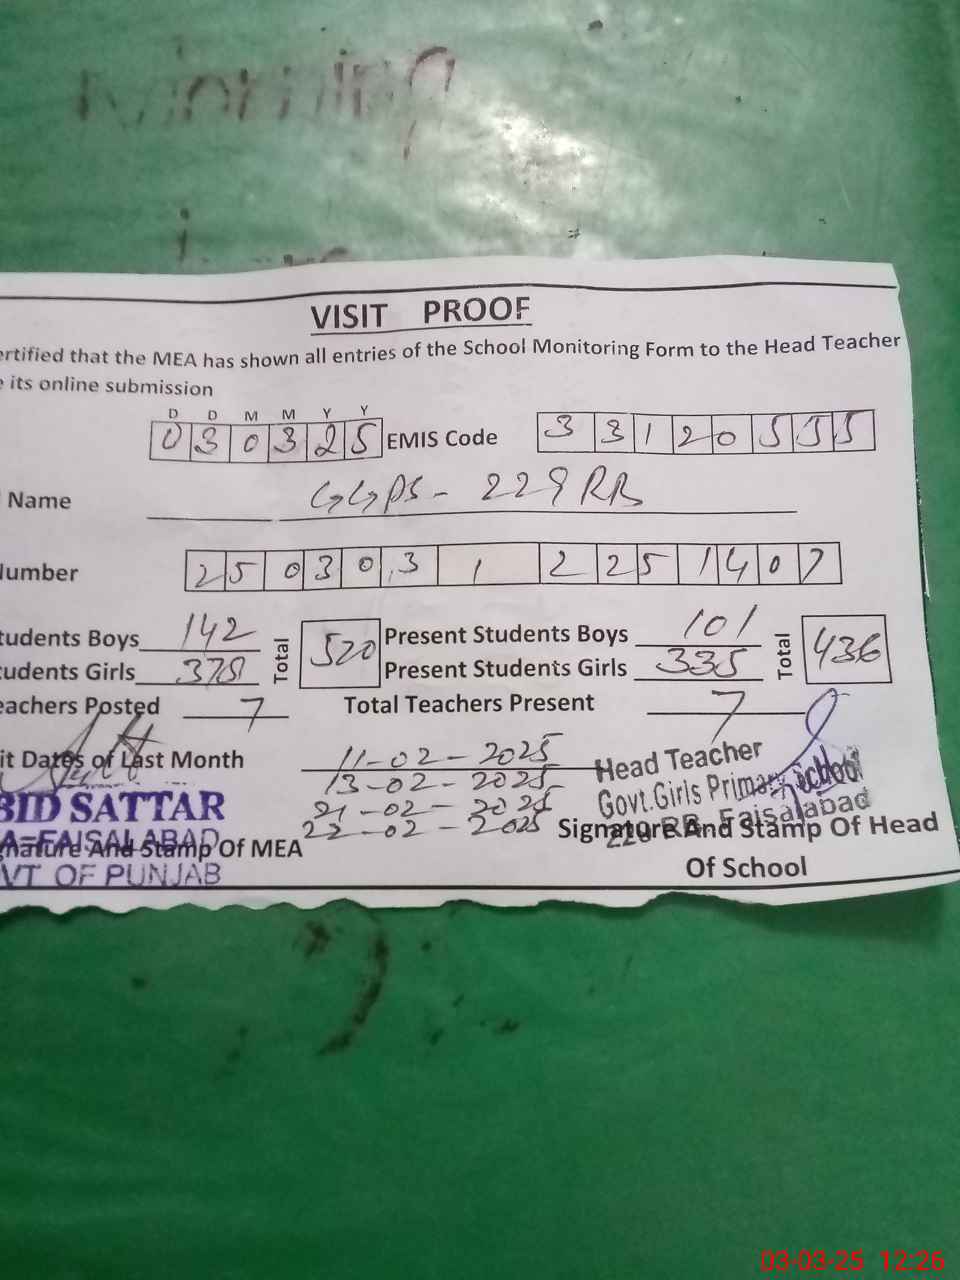 VISIT PROOF
ertified that the MEA has shown all entries of the School Monitoring Form to the Head Teacher
e its online submission
D D M M Y Y
0 3 0 3 2 5 EMIS Code 3 3 1 2 0 5 5 5
Name GGPS - 229 RB
Number 2 5 0 3 0 3 1 2 2 5 1 4 0 7
tudents Boys 142 Total 520 Present Students Boys 101 Total 436
tudents Girls 378 Present Students Girls 335
eachers Posted 7 Total Teachers Present 7
it Dates of Last Month 11-02-2025
13-02-2025
21-02-2025
22-02-2025
Head Teacher
Govt.Girls Primary School
229 RB Faisalabad
BID SATTAR
A-FAISALABAD
VT OF PUNJAB
gnature And Stamp Of MEA
Signature And Stamp Of Head
Of School
03-03-25 12:26